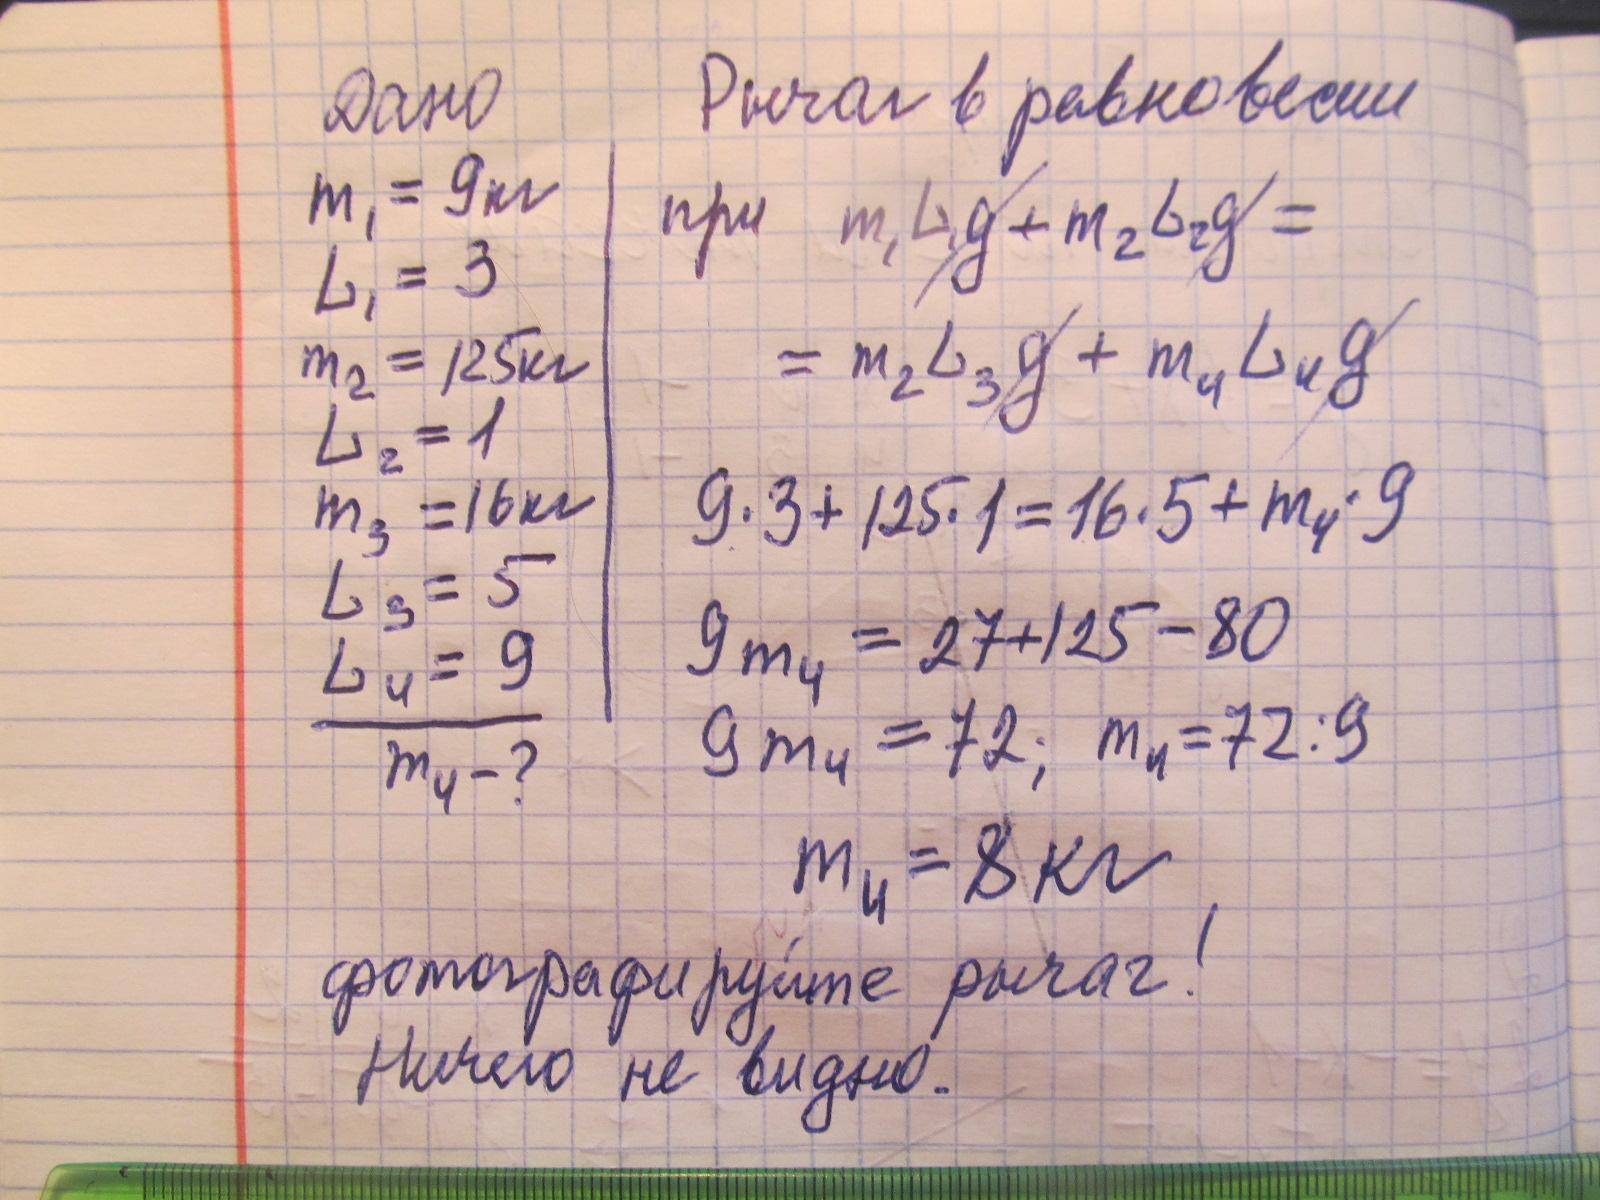 Дано
m₁ = 9кг
L₁ = 3
m₂ = 125кг
L₂ = 1
m₃ = 16кг
L₃ = 5
L₄ = 9
m₄ - ?
Рычаг в равновесии
при m₁L₁g + m₂L₂g =
= m₂L₃g + m₄L₄g
9·3 + 125·1 = 16·5 + m₄·9
9m₄ = 27+125-80
9m₄ = 72; m₄ = 72:9
m₄ = 8кг
фотографируйте рычаг!
Ничего не видно.